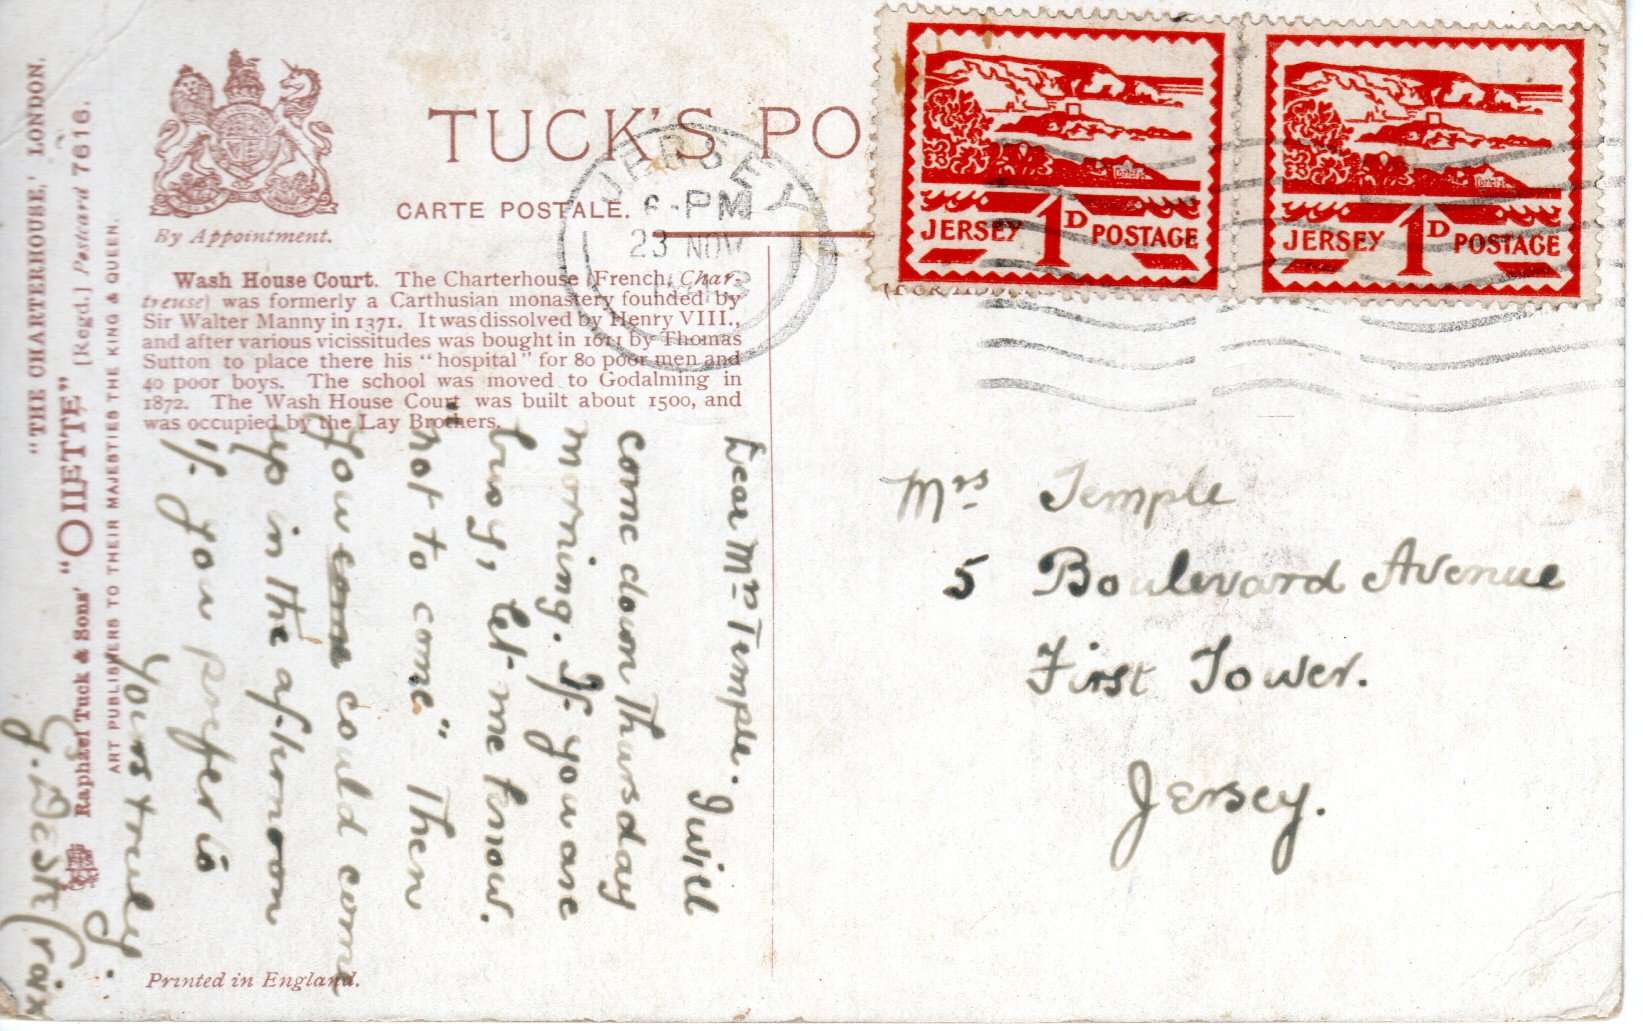 "THE CHARTERHOUSE," LONDON.
Raphael Tuck & Sons' "OILETTE" [Regd.] Postcard 7616.
ART PUBLISHERS TO THEIR MAJESTIES THE KING & QUEEN.
By Appointment.
TUCK'S PO
CARTE POSTALE.
JERSEY
6-PM
23 NOV
JERSEY 1D POSTAGE
JERSEY 1D POSTAGE
Wash House Court. The Charterhouse (French, Char-
treuse) was formerly a Carthusian monastery founded by
Sir Walter Manny in 1371. It was dissolved by Henry VIII.,
and after various vicissitudes was bought in 1611 by Thomas
Sutton to place there his "hospital" for 80 poor men and
40 poor boys. The school was moved to Godalming in
1872. The Wash House Court was built about 1500, and
was occupied by the Lay Brothers.
Dear Mrs Temple. I will
come down Thursday
morning. If you are
busy, let me know.
"not to come" Then
you come could come
up in the afternoon
if you prefer is
Yours truly.
Mrs Temple
5 Boulevard Avenue
First Tower.
Jersey.
Printed in England.